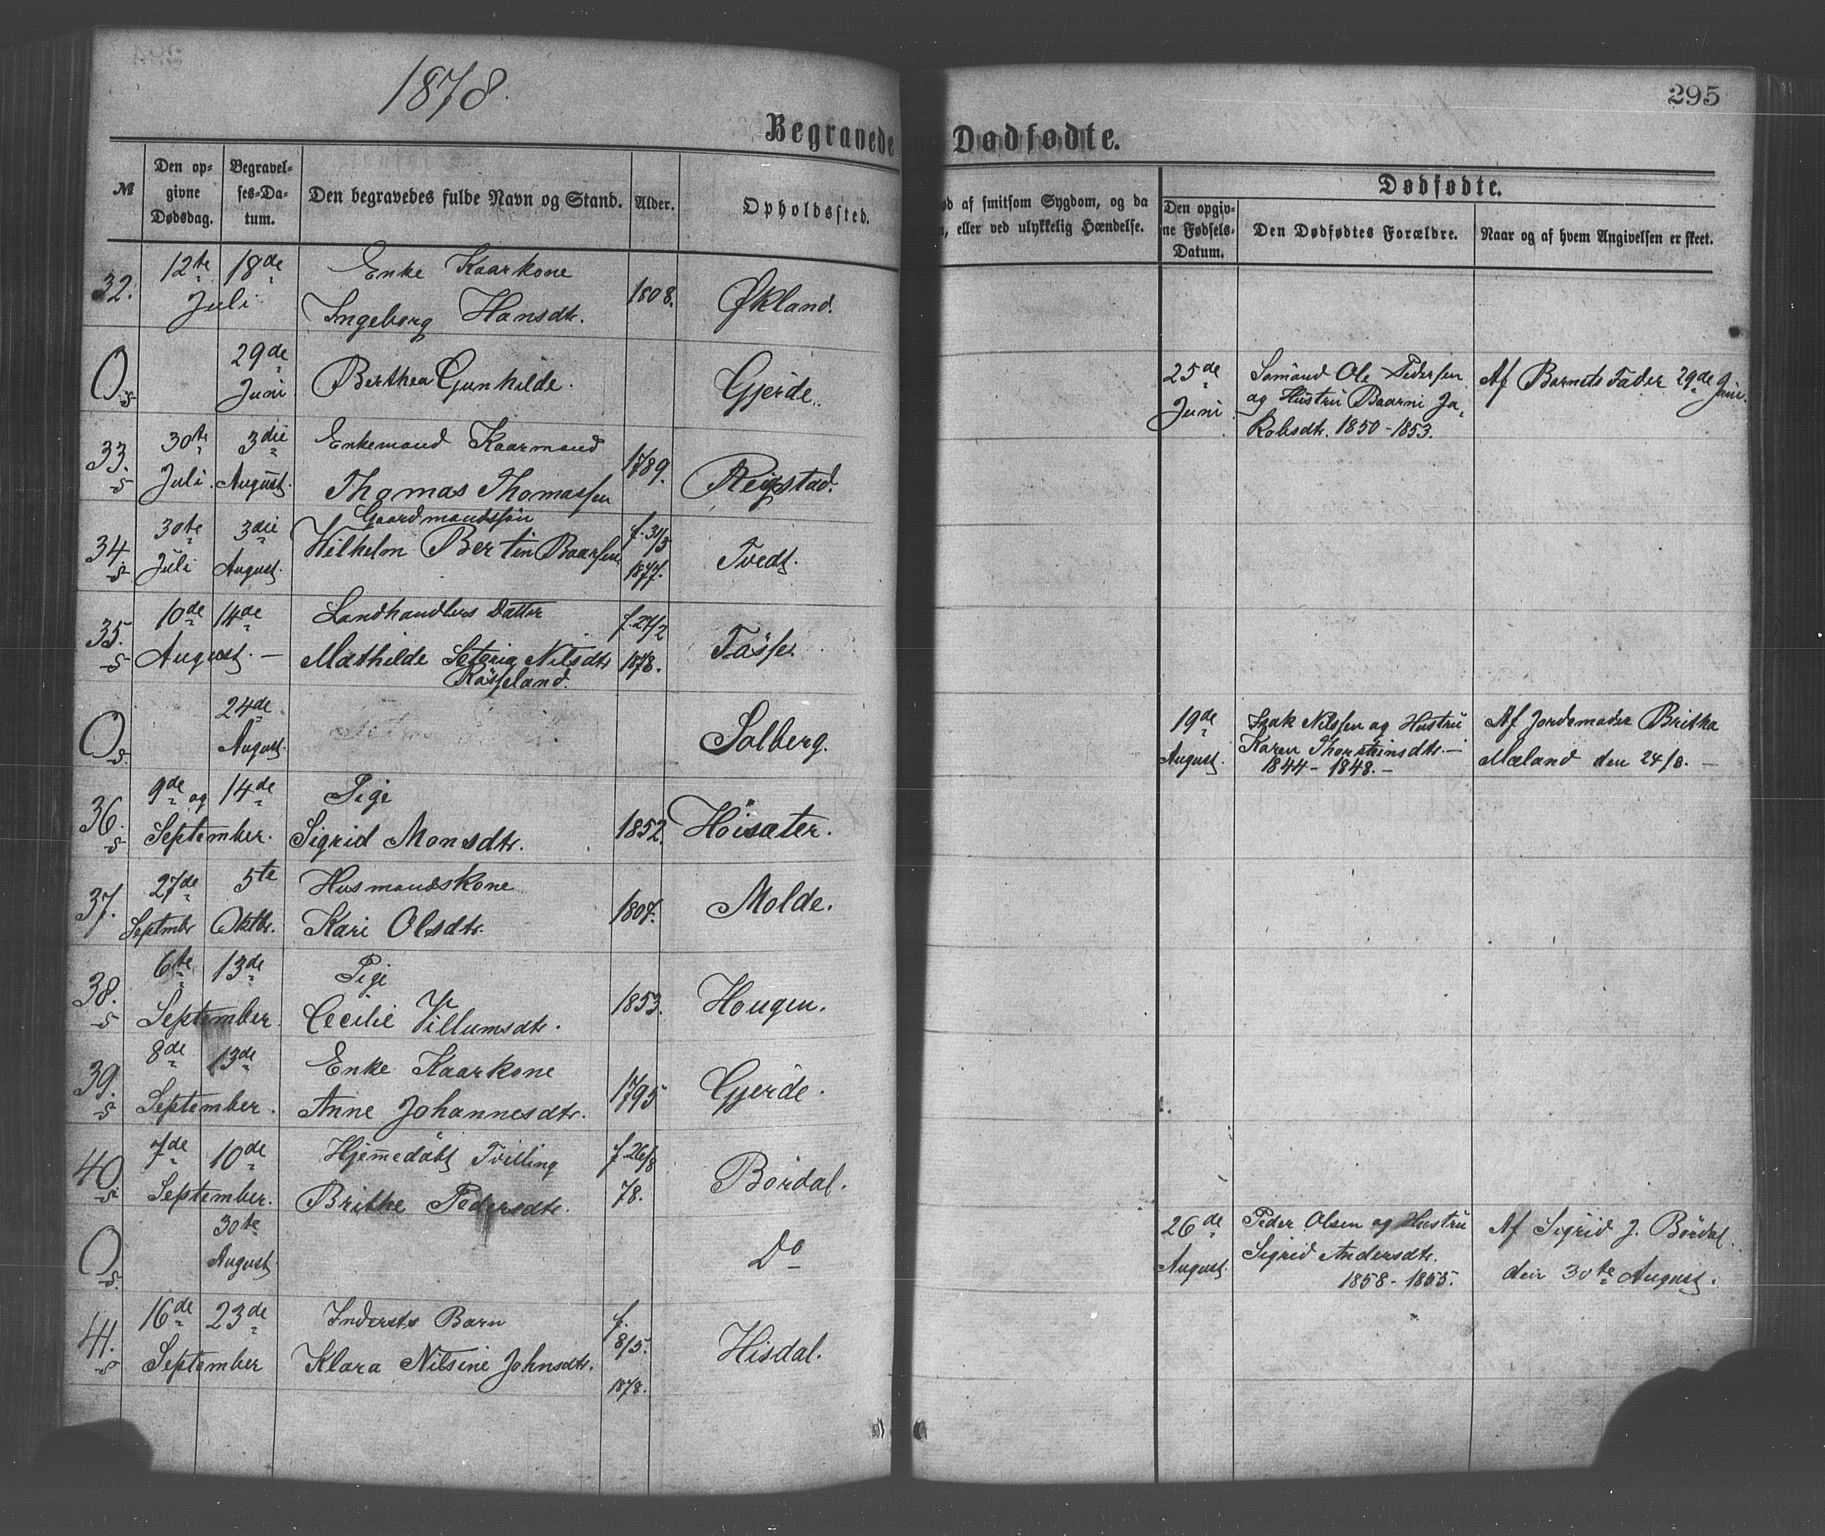 1878.
295
Begravede
Dødfødte.
№
Den op-
givne
Dødsdag.
Begravel-
ses-Da-
tum.
Den begravedes fulde Navn og Stand.
Alder.
Opholdssted.
ød af smitsom Sygdom, og da
, eller ved ulykkelig Hændelse.
Dødfødte.
Den opgiv-
ne Fødsels-
Datum.
Den Dødfødtes Forældre.
Naar og af hvem Angivelsen er skeet.
32. 12te 18de Enke Kaarkone
Juli Ingeborg Hansdtr. 1808. Økland.
O s 29de
Juni Berthea Gunhilde. Gjerde.
25de Juni
Sømand Ole Pedersen
og Hustru Baarni Ja-
kobsdtr. 1850-1853.
Af Barnets Fader 29de Juni.
33. s 30te 3die Enkemand Kaarmand
Juli. August. Thomas Thomassen 1789. Reigstad.
34. s 30te 3die Gaardmandssøn
Juli August. Wilhelm Bertin Baarsen f. 31/5 1877. Tvedt.
35. s 10de 14de Landhandlers Datter
August. — Mathilde Nilsdtr f. 27/2 1878. Tøsse.
O s 24de
August. Solberg.
19de
August.
Isak Nilssen og Hustru
Karen Thorsteinsdtr. —
1844 - 1848. —
Af Jordemoder Britha
Mæland den 24/8. —
36. s 9de og 14de Pige
September. Sigrid Monsdtr. 1852. Høisæter.
37. 27de 5te Husmandskone
Septmbr Oktbr. Kari Olsdtr. 1807. Molde.
38. s 6te 13de Pige
September. Cecilie Villumsdtr. 1853. Hougen.
39. s 8de 13de Enke Kaarkone
September. Anne Johannesdtr. 1795 Gjerde.
40. s 7de 10de Hjemmedøbt Tvilling
September. Brithe Pedersdtr. f 26/8 78. Børdal.
O s 30te
August. Do
26de
August.
Peder Olsen og Hustru
Sigrid Andersdtr.
1858 - 1855.
Af Sigrid J. Børdal.
den 30te August.
41. s 16de 23de Indersts Barn
September Klara Nilsine Johnsdtr. f. 8/5. 1878. Hisdal.